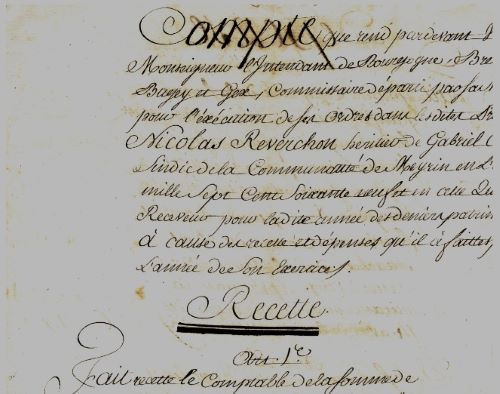 Compte, que rend pardevant
Monseigneur l'Intendant de Bourgogne, Bre
Bugey et Gex, Commissaire départi par sa
pour l'éxécution de ses ordres dans lesdites
Nicolas Reverchon héritier de Gabriel
Sindic de la Communauté de Meyrin en L
mille Sept Cents Soixante neuf et en cette Qu
Receveur pour la dite année des deniers
à cause des recette et dépenses qu'il a faittes
L'année de Son Exercice.
Recette
Art. 1er
Fait recette le Comptable de la somme de